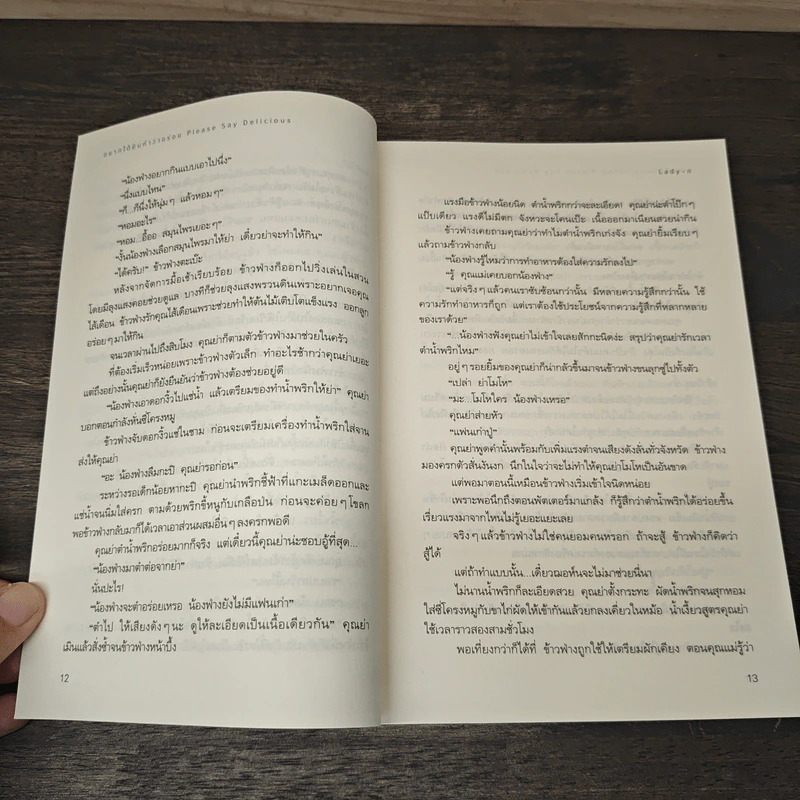 อยากได้ยินคำว่าอร่อย Please Say Delicious
“น้องฟางอยากกินแบบเอาไปนึ่ง”
“นึ่งแบบไหน”
“ก็...ก็นึ่งให้นุ่มๆ แล้วหอมๆ”
“หอมอะไร”
“หอม...อื้ออ สมุนไพรเยอะๆ”
“งั้นน้องฟางเลือกสมุนไพรมาให้ย่า เดี๋ยวย่าจะทำให้กิน”
“ได้ครับ!” ข้าวฟางตะเบ๊ะ
หลังจากจัดการมื้อเช้าเรียบร้อย ข้าวฟางก็ออกไปวิ่งเล่นในสวน
โดยมีลุงแสงคอยช่วยดูแล บางทีก็ช่วยลุงแสงพรวนดินเพราะอยากเจอคุณ
ไส้เดือน ข้าวฟางรักคุณไส้เดือนเพราะช่วยทำให้ต้นไม้เติบโตแข็งแรง ออกลูก
อร่อยๆ มาให้กิน
จนเวลาผ่านไปถึงสิบโมง คุณย่าก็ตามตัวข้าวฟางมาช่วยในครัว
ที่ต้องเริ่มเร็วหน่อยเพราะข้าวฟางตัวเล็ก ทำอะไรช้ากว่าคุณย่าเยอะ
แต่ถึงอย่างนั้นคุณย่าก็ยังยืนยันว่าข้าวฟางต้องช่วยอยู่ดี
“น้องฟางเอาดอกงิ้วไปแช่น้ำ แล้วเตรียมของทำน้ำพริกให้ย่า” คุณย่า
บอกตอนกำลังหั่นซี่โครงหมู
ข้าวฟางจับดอกงิ้วแช่ในชาม ก่อนจะเตรียมเครื่องทำน้ำพริกใส่จาน
ส่งให้คุณย่า
“อะ น้องฟางลืมกะปิ คุณย่ารอก่อน”
ระหว่างรอเด็กน้อยหากะปิ คุณย่านำพริกชี้ฟ้าที่แกะเมล็ดออกและ
แช่น้ำจนนิ่มใส่ครก ตามด้วยพริกขี้หนูกับเกลือป่น ก่อนจะค่อยๆ โขลก
พอข้าวฟางกลับมาก็ได้เวลาเอาส่วนผสมอื่นๆ ลงครกพอดี
คุณย่าตำน้ำพริกอร่อยมากก็จริง แต่เดี๋ยวนี้คุณย่าน่ะชอบอู้ที่สุด...
“น้องฟางมาตำต่อจากย่า”
นั่นปะไร!
“น้องฟางจะตำอร่อยเหรอ น้องฟางยังไม่มีแฟนเก่า”
“ตำไป ให้เสียงดังๆ นะ ดูให้ละเอียดเป็นเนื้อเดียวกัน” คุณย่า
เมินแล้วสั่งซ้ำจนข้าวฟางหน้าบึ้ง
12
Lady-n
แรงมือข้าวฟางน้อยนิด ตำน้ำพริกกว่าจะละเอียด! คุณย่าน่ะตำโป๊กๆ
แป๊บเดียว แรงดีไม่มีตก จังหวะจะโคนเป๊ะ เนื้อออกมาเนียนสวยน่ากิน
ข้าวฟางเคยถามคุณย่าว่าทำไมตำน้ำพริกเก่งจัง คุณย่ายิ้มเรียบๆ
แล้วถามข้าวฟางกลับ
“น้องฟางรู้ไหมว่าการทำอาหารต้องใส่ความรักลงไป”
“รู้ คุณแม่เคยบอกน้องฟาง”
“แต่จริงๆ แล้วคนเราซับซ้อนกว่านั้น มีหลายความรู้สึกกว่านั้น ใช้
ความรักทำอาหารก็ถูก แต่เราต้องใช้ประโยชน์จากความรู้สึกที่หลากหลาย
ของเราด้วย”
“...น้องฟางฟังคุณย่าไม่เข้าใจเลยสักกะนิดง่ะ สรุปว่าคุณย่ารักเวลา
ตำน้ำพริกไหม”
อยู่ๆ รอยยิ้มของคุณย่าก็น่ากลัวขึ้นมาจนข้าวฟางขนลุกซู่ไปทั้งตัว
“เปล่า ย่าโมโห”
“มะ...โมโหใคร น้องฟางเหรอ”
คุณย่าส่ายหัว
“แฟนเก่าปู่”
คุณย่าพูดคำนั้นพร้อมกับเพิ่มแรงตำจนเสียงดังลั่นทั่วจังหวัด ข้าวฟาง
มองครกตัวสั่นงันงก นึกในใจว่าจะไม่ทำให้คุณย่าโมโหเป็นอันขาด
แต่พอมาตอนนี้เหมือนข้าวฟางเริ่มเข้าใจนิดหน่อย
เพราะพอนึกถึงตอนพัตเตอร์มาแกล้ง ก็รู้สึกว่าตำน้ำพริกได้อร่อยขึ้น
เรี่ยวแรงมาจากไหนไม่รู้เยอะแยะเลย
จริงๆ แล้วข้าวฟางไม่ใช่คนยอมคนหรอก ถ้าจะสู้ ข้าวฟางก็คิดว่า
สู้ได้
แต่ถ้าทำแบบนั้น...เดี๋ยวฌอห์นจะไม่มาช่วยนี่นา
ไม่นานน้ำพริกก็ละเอียดสวย คุณย่าตั้งกระทะ ผัดน้ำพริกจนสุกหอม
ใส่ซี่โครงหมูกับขาไก่ผัดให้เข้ากันแล้วยกลงเคี่ยวในหม้อ น้ำเงี้ยวสูตรคุณย่า
ใช้เวลาราวสองสามชั่วโมง
พอเที่ยงกว่าก็ได้ที่ ข้าวฟางถูกใช้ให้เตรียมผักเคียง ตอนคุณแม่รู้ว่า
13